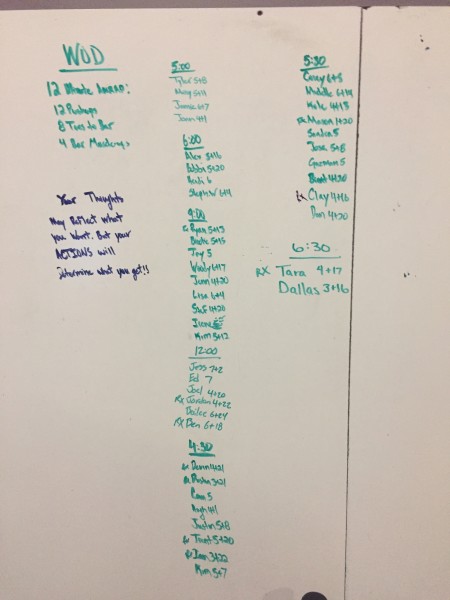 WOD
12 Minute AMRAP:
12 Pushups
8 Toes to Bar
4 Bar Muscleups
Your Thoughts
May Reflect what
you want. But your
ACTIONS will
determine what you get!!
5:00
Tyler 5+8
May 5+11
Jamie 6+7
Jason 4+1
6:00
Alex 3+16
Bobbi 5+20
6
Steph W 6+4
9:00
Ryan 5+13
5+15
Troy 5
Woody 6+17
Jenn 4+20
Lisa 6+4
4+20
Kim 5+12
12:00
Jess 7+2
Ed 7
Joel 4+20
RX Jordan 4+22
Dallee 6+24
RX Ben 6+18
4:30
4+21
3+21
Cam 5
4+1
Justin 5+8
Trent 5+20
3+22
Kim 5+7
5:30
Corey 6+5
Michelle 6+14
4+13
Mason 1+20
Sandra 5
Jose 5+8
Guzman 5
Brent 4+20
Rx Clay 4+16
Dan 4+20
6:30
RX Tara 4+17
Dallas 3+16